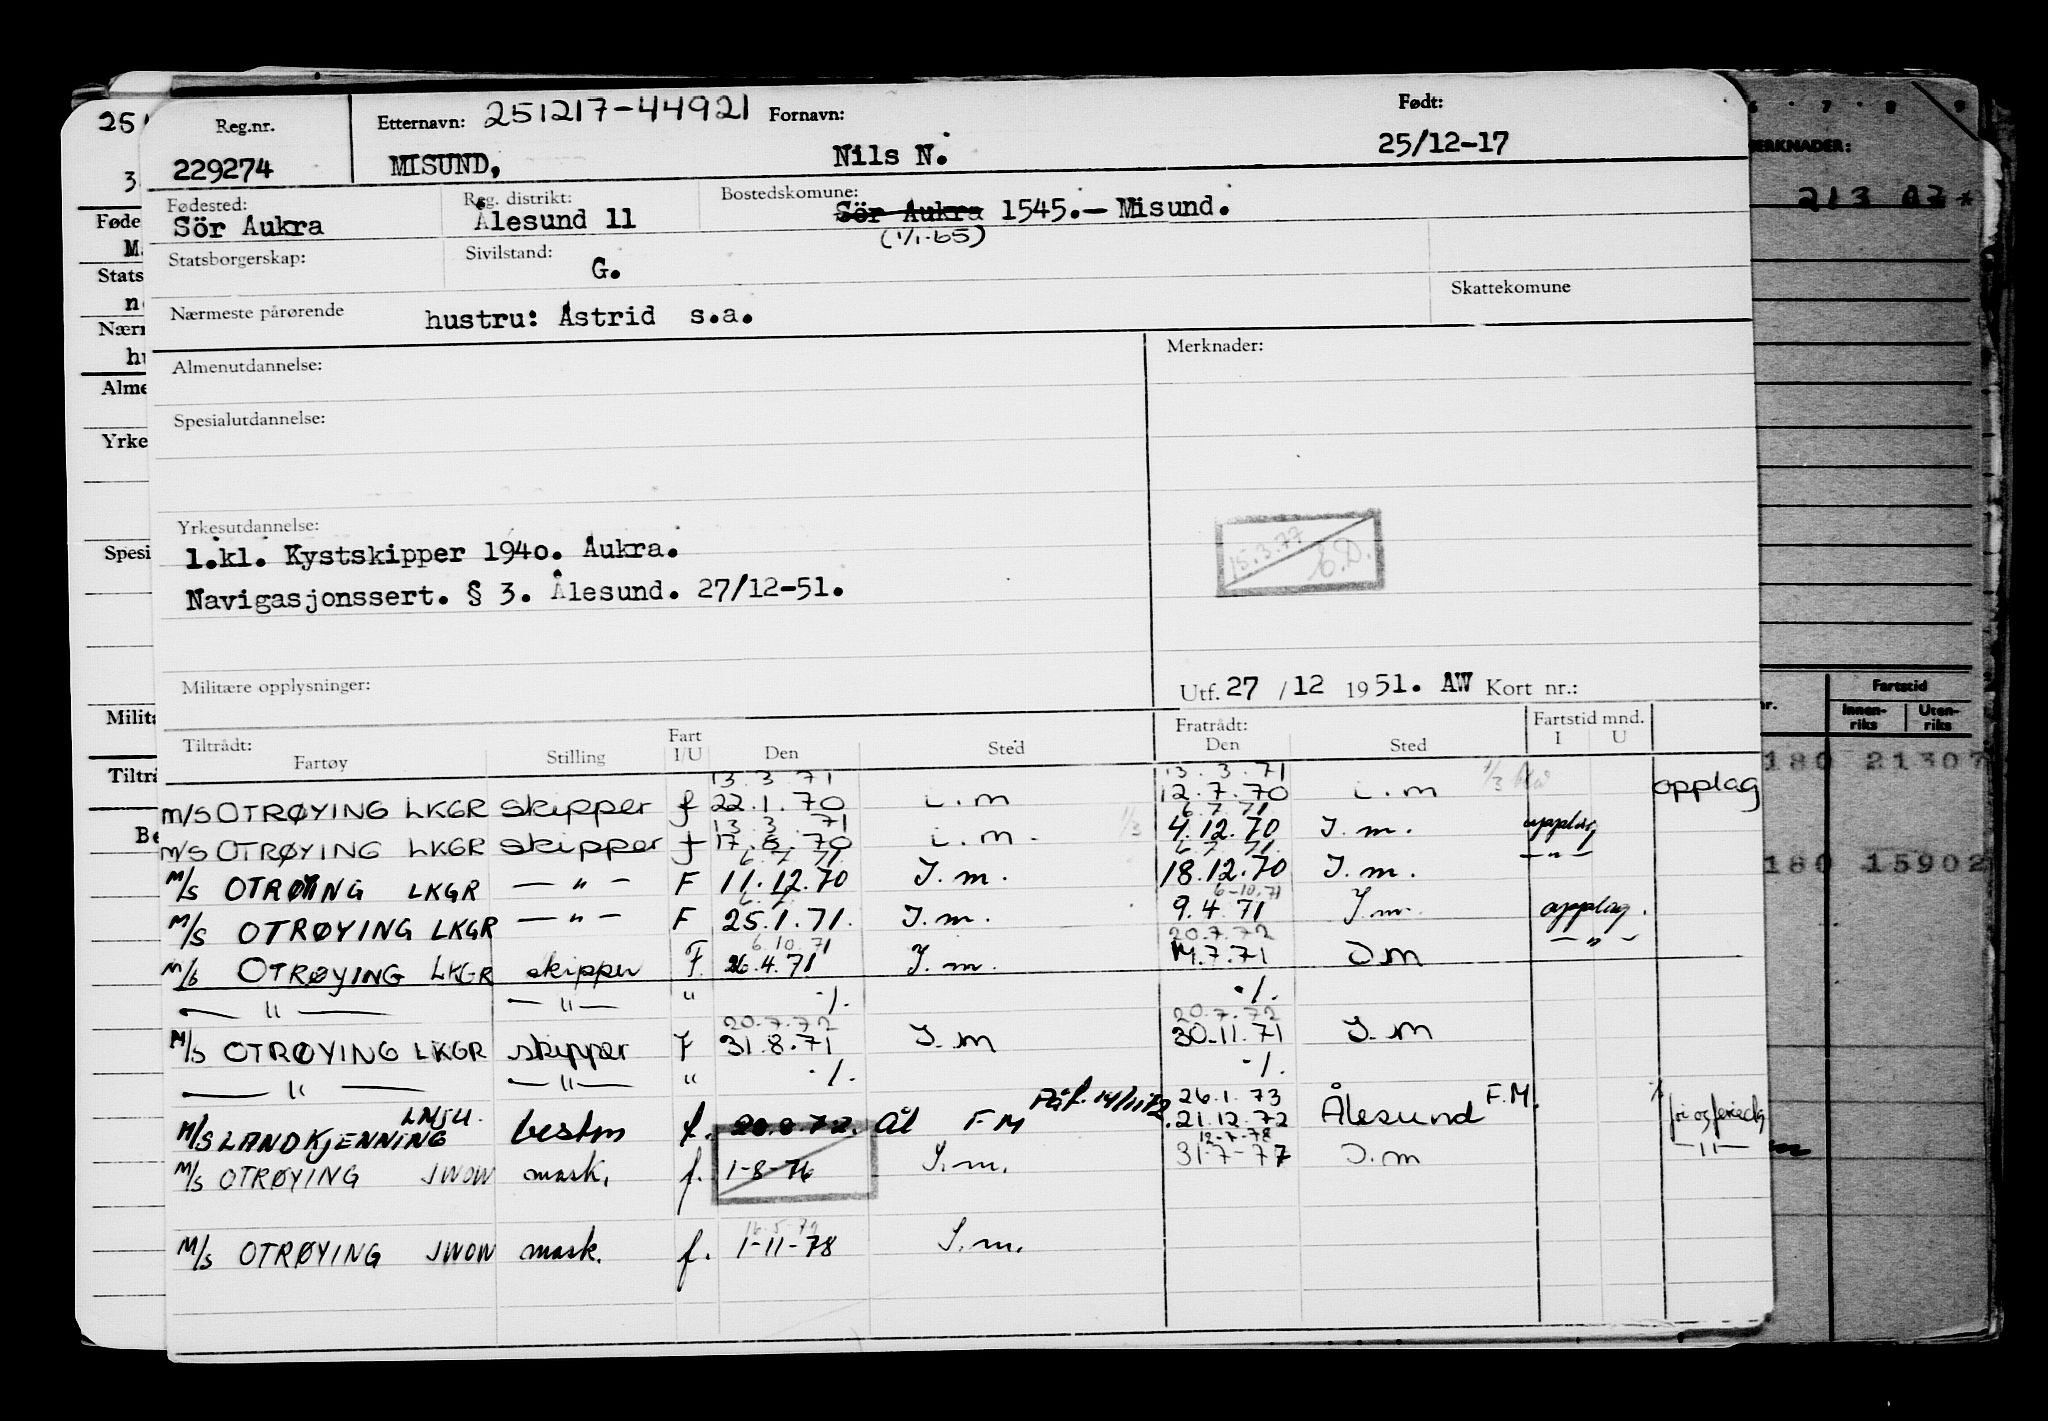 Reg.nr. Etternavn: 251217-44921 Fornavn: Født:
229274 MISUND, Nils N. 25/12-17
Fødested: Reg. distrikt: Bostedskomune:
Sör Aukra Ålesund 11 Sör Aukra 1545.- Misund.
(1/1-65)
Statsborgerskap: Sivilstand: G.
Skattekomune
Nærmeste pårørende hustru: Astrid s.a.
Almenutdannelse: Merknader:
Spesialutdannelse:
Yrkesutdannelse:
1.kl. Kystskipper 1940. Aukra.
15.3.77 E.D.
Navigasjonssert. § 3. Ålesund. 27/12-51.
Militære opplysninger: Utf. 27 / 12 1951. AW Kort nr.:
Tiltrådt: Fart Fratrådt: Fartstid mnd.
Fartøy Stilling I/U Den Sted Den Sted I U
13.3.71 13.3.71
M/S OTRØYING LKGR skipper f 22.1.70 i.m 12.7.70 i.m 1/3 opplag
13.3.71 6.7.71
M/S OTRØYING LKGR skipper f 17.8.70 i.m. 1/3 4.12.70 I.m. opplag
6.7.71 6.7.71
M/S OTRØYING LKGR — " — F 11.12.70 I.m. 18.12.70 I.m. — " —
6.7. 6-10.71
M/S OTRØYING LKGR — " — F 25.1.71. I.m. 9.4.71 I.m. opplag.
6.10.71 20.7.72
M/S OTRØYING LKGR skipper F. 26.4.71 I.m. 14.7.71 I m — " —
— " — — " — " ./. ./.
20.7.72 20.7.72
M/S OTRØYING LKGR skipper F 31.8.71 I.m 30.11.71 I.m
— " — — " — " ./. ./.
LMJU. Påf. 14/11 72 26.1.73
M/S LANDKJENNING bestm f. 20.8.72. Ål F M 21.12.72 Ålesund F.M. fri og feriedg
12-7-78
M/S OTRØYING JWOW mask. f. 1-8-76 I.m. 31-7-77 I.m — " —
16.5.79
M/S OTRØYING JWOW mask. f. 1-11-78 I.m.
251
3
Føde
M
Stats
n
Nærm
hu
Alme
Yrke
Spesi
Milita
Tiltrå
Be
6 · 7 · 8 · 9
MERKNADER:
213 02*
nr. Fartstid
Innen-riks Uten-riks
180 21307
180 15902